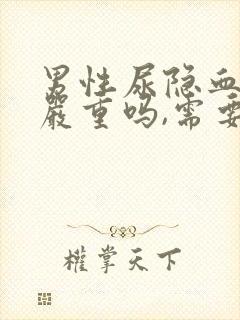 男性尿隐血
严重吗,需要
權掌天下